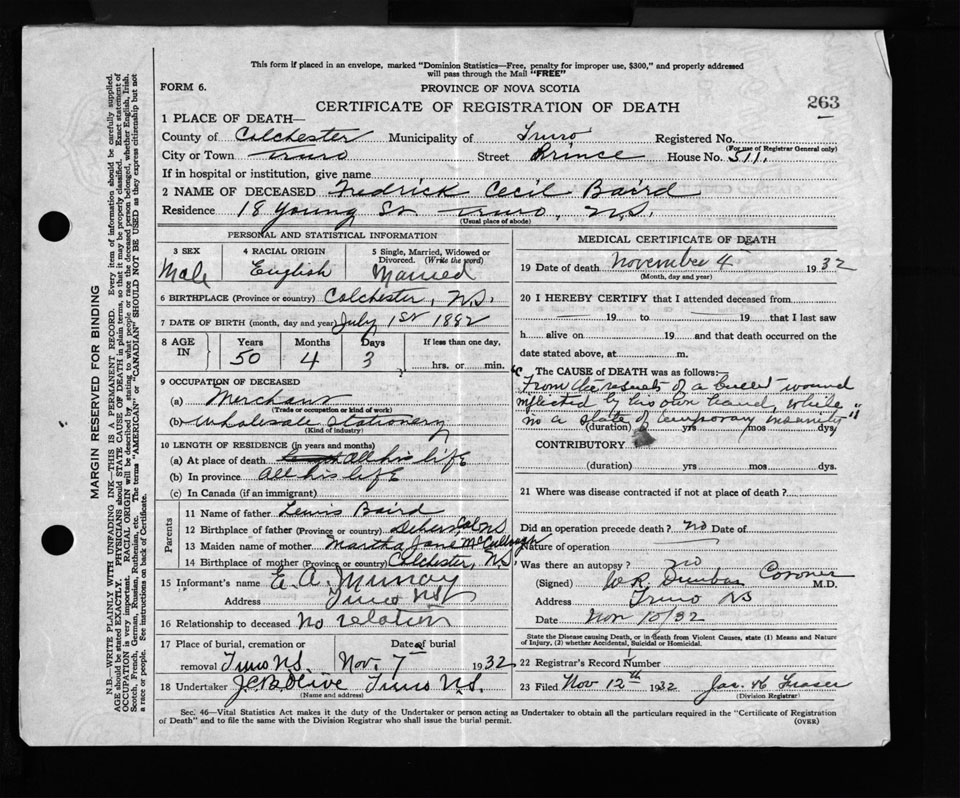 This form if placed in an envelope, marked "Dominion Statistics—Free, penalty for improper use, $300," and properly addressed
will pass through the Mail "FREE"
FORM 6.
PROVINCE OF NOVA SCOTIA
CERTIFICATE OF REGISTRATION OF DEATH
263
1 PLACE OF DEATH—
County of Colchester Municipality of Truro Registered No.
(For use of Registrar General only)
City or Town Truro Street Prince House No. 511.
If in hospital or institution, give name
2 NAME OF DECEASED Fredrick Cecil Baird
Residence 18 Young St Truro, N.S.
(Usual place of abode)
PERSONAL AND STATISTICAL INFORMATION
3 SEX
Male
4 RACIAL ORIGIN
English
5 Single, Married, Widowed or
Divorced. (Write the word)
Married
6 BIRTHPLACE (Province or country) Colchester, N.S.
7 DATE OF BIRTH (month, day and year) July 1st 1882
8 AGE
IN
Years
50
Months
4
Days
3
If less than one day,
hrs. or min.
9 OCCUPATION OF DECEASED
(a) Merchant
(Trade or occupation or kind of work)
(b) Wholesale Stationery
(Kind of industry)
10 LENGTH OF RESIDENCE (in years and months)
(a) At place of death All his life
(b) In province all his life
(c) In Canada (if an immigrant)
Parents
11 Name of father Lewis Baird
12 Birthplace of father (Province or country) Col N.S.
13 Maiden name of mother Martha Jane McCullough
14 Birthplace of mother (Province or country) Colchester, N.S.
15 Informant's name E. A. Murray
Address Truro NS
16 Relationship to deceased No relation
17 Place of burial, cremation or Date of
removal Truro N.S. Nov. 7 1932
18 Undertaker J.C.B. Olive Truro N.S.
(Name and address)
MEDICAL CERTIFICATE OF DEATH
19 Date of death November 4 1932
(Month, day and year)
20 I HEREBY CERTIFY that I attended deceased from
19 to 19 that I last saw
h alive on 19 and that death occurred on the
date stated above, at m.
The CAUSE OF DEATH was as follows:
"From the results of a bullet wound
inflicted by his own hand, while
in a state of temporary insanity"
(duration) yrs mos dys.
CONTRIBUTORY
(duration) yrs mos dys.
21 Where was disease contracted if not at place of death?
Did an operation precede death? no Date of
Nature of operation
Was there an autopsy? no
(Signed) W.R. Dunbar Coroner M.D.
Address Truro NS
Date Nov 10/32
State the Disease causing Death, or in death from Violent Causes, state (1) Means and Nature
of Injury, (2) whether Accidental, Suicidal or Homicidal.
22 Registrar's Record Number
23 Filed Nov 12th 1932 Jas. H. Fraser
(Division Registrar)
Sec. 46—Vital Statistics Act makes it the duty of the Undertaker or person acting as Undertaker to obtain all the particulars required in the "Certificate of Registration
of Death" and to file the same with the Division Registrar who shall issue the burial permit.
(OVER)
MARGIN RESERVED FOR BINDING
N.B.—WRITE PLAINLY WITH UNFADING INK—THIS IS A PERMANENT RECORD. Every item of information should be carefully supplied.
AGE should be stated EXACTLY. PHYSICIANS should STATE CAUSE OF DEATH in plain terms, so that it may be properly classified. Exact statement of
OCCUPATION is very important. RACIAL ORIGIN will be described by stating to what people or race the deceased person belonged, whether English, Irish,
Scotch, French, German, Russian, Ruthenian, etc. The terms "AMERICAN" or "CANADIAN" SHOULD NOT BE USED as they express citizenship but not
a race or people. See instructions on back of Certificate.